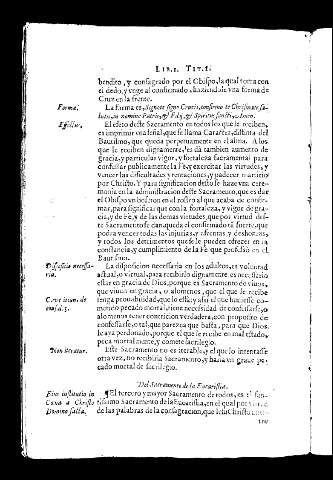 LIB. I. TIT. I.
bendito, y consagrado por el Obispo, la qual toma con
el dedo, y vnge al confirmado, haziendole vna forma de
Cruz en la frente.
Forma.
La forma es, Signo te signo Crucis, confirmo te Chrismate sa-
lutis, in nomine Patris, & Filij, & Spiritus sancti, Amen.
Effectus.
El efeto deste Sacramento en todos los que le reciben,
es imprimir vna señal, que se llama Caracter, distinta del
Bautismo, que queda perpetuamente en el alma. A los
que le reciben dignamente, les dà tambien aumento de
gracia, y particular vigor, y fortaleza sacramental para
confessar publicamente la Fè, y exercitar las virtudes, y
vencer las dificultades y tentaciones, y padecer martirio
por Christo. Y para significacion desto se haze vna cere-
monia en la administracion deste Sacramento, que es dar
el Obispo vn bofeton en el rostro al que acaba de confir-
mar, para significar que con la fortaleza, y vigor de gra-
cia, y de Fè, y de las demas virtudes, que por virtud des-
te Sacramento se dan, queda el confirmado tã fuerte, que
podra vencer todas las injurias, y afrentas, y deshonras,
y todos los detrimentos que se le pueden ofrecer en la
constancia, y cumplimiento de la Fè que professò en el
Bautismo.
Dispositio necessa-
ria.
La disposicion necessaria en los adultos, es voluntad
actual, o virtual, para recibirlo dignamente es necessario
estar en gracia de Dios, porque es Sacramento de viuos,
que viuan en gracia, o alomenos, que el que le recibe
tenga probabilidad, que lo està, y assi el que huuiesse co-
metido pecado mortal, tiene necessidad de confessarse, o
alomenos tener contricion verdadera, con proposito de
confessarse, o tal que parezca que basta, para que Dios
le aya perdonado, porque el que le recibe en mal estado,
peca mortalmente, y comete sacrilegio.
Non iteratur.
Este Sacramento no es iterable, y el que lo intentasse
otra vez, no recibiria Sacramento, y haria vn graue pe-
cado mortal de sacrilegio.
Del Sacramento de la Eucaristia.
Fuit institutio in
Cæna à Christo
Domino facta.
El tercero y mayor Sacramento de todos, es el san-
tissimo Sacramento de la Eucaristia, en el qual por virtud
de las palabras de la consagracion, que Iesu Christo